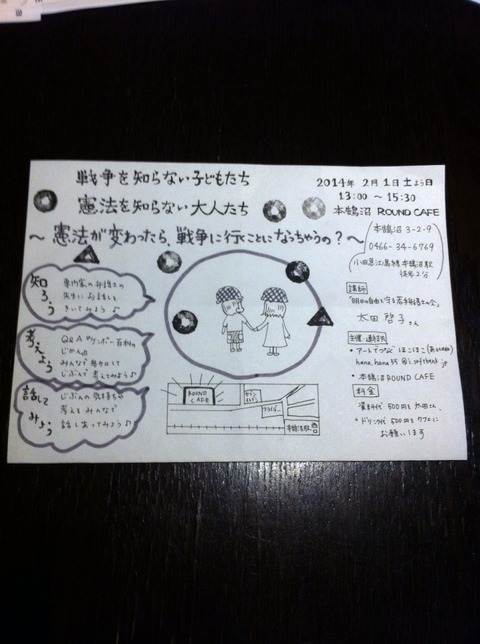 戦争を知らない子どもたち
憲法を知らない大人たち
～憲法が変わったら、戦争に行くことになっちゃうの？～
2014年 2月1日土よう日
13:00 ～ 15:30
本鵠沼 ROUND CAFE
本鵠沼 3-2-9
0466-34-6769
小田急江島線本鵠沼駅
徒歩2分
知ろう
専門家の弁護士の
先生にお話しを
きいてみよう♪
考えよう
Q&A
じかん。
みんなで
じぶんで考えてみよう♪
話してみよう
じぶんの気持ちや
考えをみんなで
話しあってみよう♪
ROUND CAFE
本鵠沼駅 西口
講師
「明日の自由を守る若手弁護士の会」
太田 啓子さん
主催・連絡先
・アートでつなぐ ほこほこ
・本鵠沼 ROUND CAFE
料金
資料代 500円を太田さん
・ドリンク代 500円をカフェに
お願いします